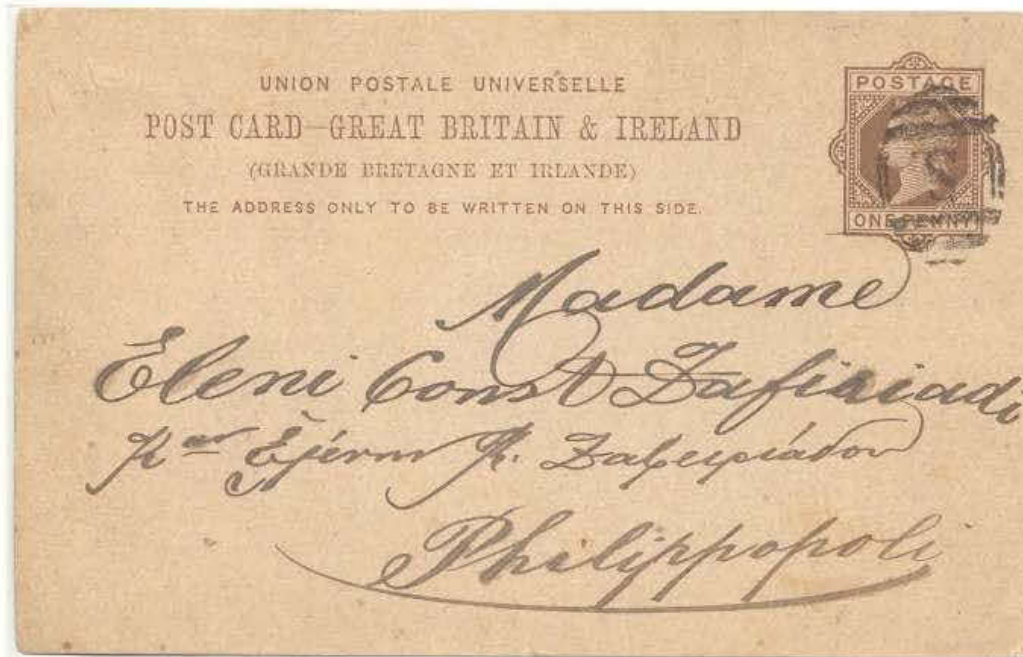 UNION POSTALE UNIVERSELLE
POST CARD—GREAT BRITAIN & IRELAND
(GRANDE BRETAGNE ET IRLANDE)
THE ADDRESS ONLY TO BE WRITTEN ON THIS SIDE.
POSTAGE
ONE PENNY
Madame
Eleni Const Zafiriadi
Καν Ἑλένην Κ. Ζαφειριάδου
Philippopoli